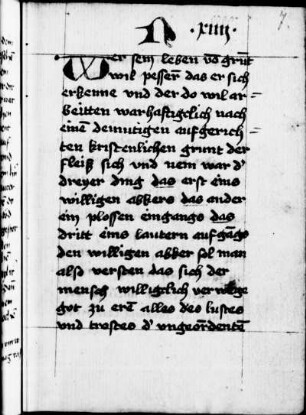 N .xiiij. 7.
Wer sein leben vō grūt
wil pessern das er sich
erkenne vnd der do wil ar=
beitten warhafftigclich nach
eine demutigen aufgerich=
ten kristenlichen grunt der
fleiß sich vnd nem war d'
dreyer ding das erst eins
willigen abkers das ander
ein plossen eingangs das
dritt eins lautern aufgāgs
den willigen abker sol man
also versten das sich der
mensch williclich verwege
got zu ere alles des lustes
vnd trostes d' vngeordente